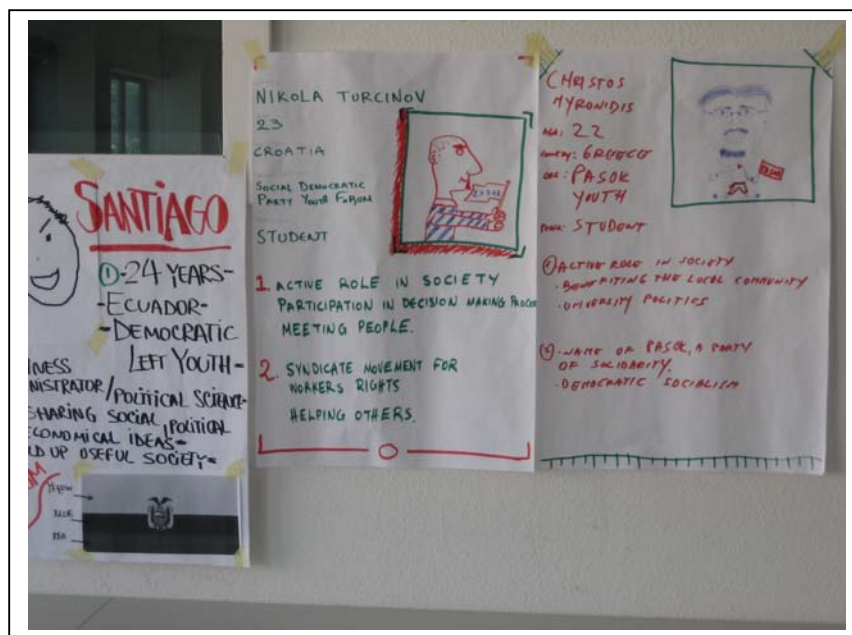 SANTIAGO
1 -24 YEARS-
-ECUADOR-
-DEMOCRATIC
LEFT YOUTH-
/POLITICAL SCIENCE-
SHARING SOCIAL /POLITICAL
IDEAS-
UP USEFUL SOCIETY-
YELLOW
BLUE
RED
NIKOLA TURCINOV
23
CROATIA
SOCIAL DEMOCRATIC
PARTY YOUTH FORUM
STUDENT
1. ACTIVE ROLE IN SOCIETY
PARTICIPATION IN DECISION MAKING PROCE
MEETING PEOPLE.
2. SYNDICATE MOVEMENT FOR
WORKERS RIGHTS
HELPING OTHERS.
CHRISTOS
MYRONIDIS
AGE: 22
COUNTRY: GREECE
ORG: PASOK
YOUTH
STUDENT
1 ACTIVE ROLE IN SOCIETY
· BENEFITING THE LOCAL COMMUNITY
· POLITICS
2 · NAME OF PASOK, A PARTY
OF SOLIDARITY.
· DEMOCRATIC SOCIALISM